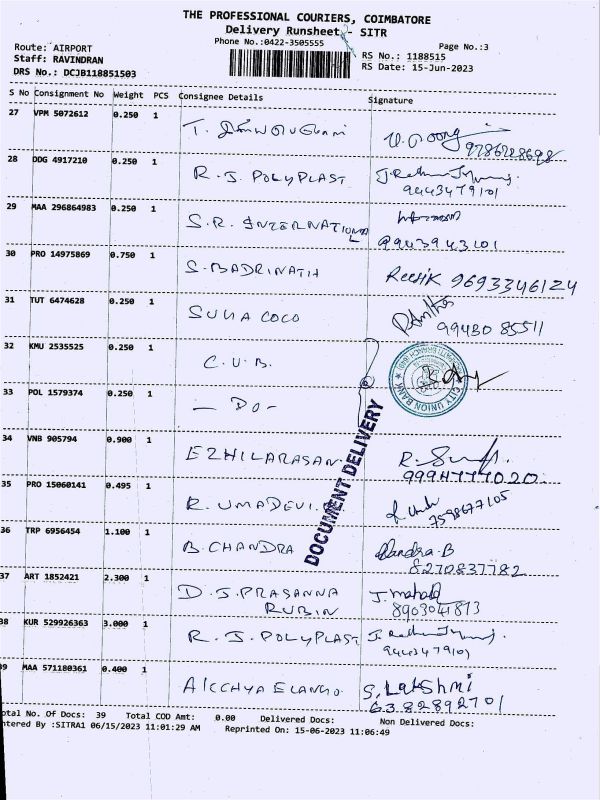 THE PROFESSIONAL COURIERS, COIMBATORE
Delivery Runsheet - SITR
Phone No.:0422-3505555
Page No.:3
Route: AIRPORT
Staff: RAVINDRAN
DRS No.: DCJB118851503
RS No.: 1188515
RS Date: 15-Jun-2023
S No Consignment No Weight PCS Consignee Details Signature
27 VPM 5072612 0.250 1 T.
28 DDG 4917210 0.250 1 R. J. POLYPLAST
9443479101
29 MAA 296864983 0.250 1 S.R. INTERNATIONAL
9943943101
30 PRO 14975869 0.750 1 S. BADRINATH 9693346124
31 TUT 6474628 0.250 1 COCO
99430 85511
32 KMU 2535525 0.250 1 C. U. B.
CITY UNION BANK
33 POL 1579374 0.250 1 - DO -
DOCUMENT DELIVERY
34 VNB 905794 0.900 1 EZHILARASAN
35 PRO 15060141 0.495 1 R. UMADEVI
7598677105
36 TRP 6956454 1.100 1 B. CHANDRA Chandra.B
8270837782
37 ART 1852421 2.300 1 D. J. PRASANNA
RUBIN
38 KUR 529926363 3.000 1 R. J. POLYPLAST
9443479101
39 MAA 571180361 0.400 1 S. Lakshmi
6382892701
otal No. Of Docs: 39 Total COD Amt: 0.00 Delivered Docs: Non Delivered Docs:
ntered By :SITRA1 06/15/2023 11:01:29 AM Reprinted On: 15-06-2023 11:06:49